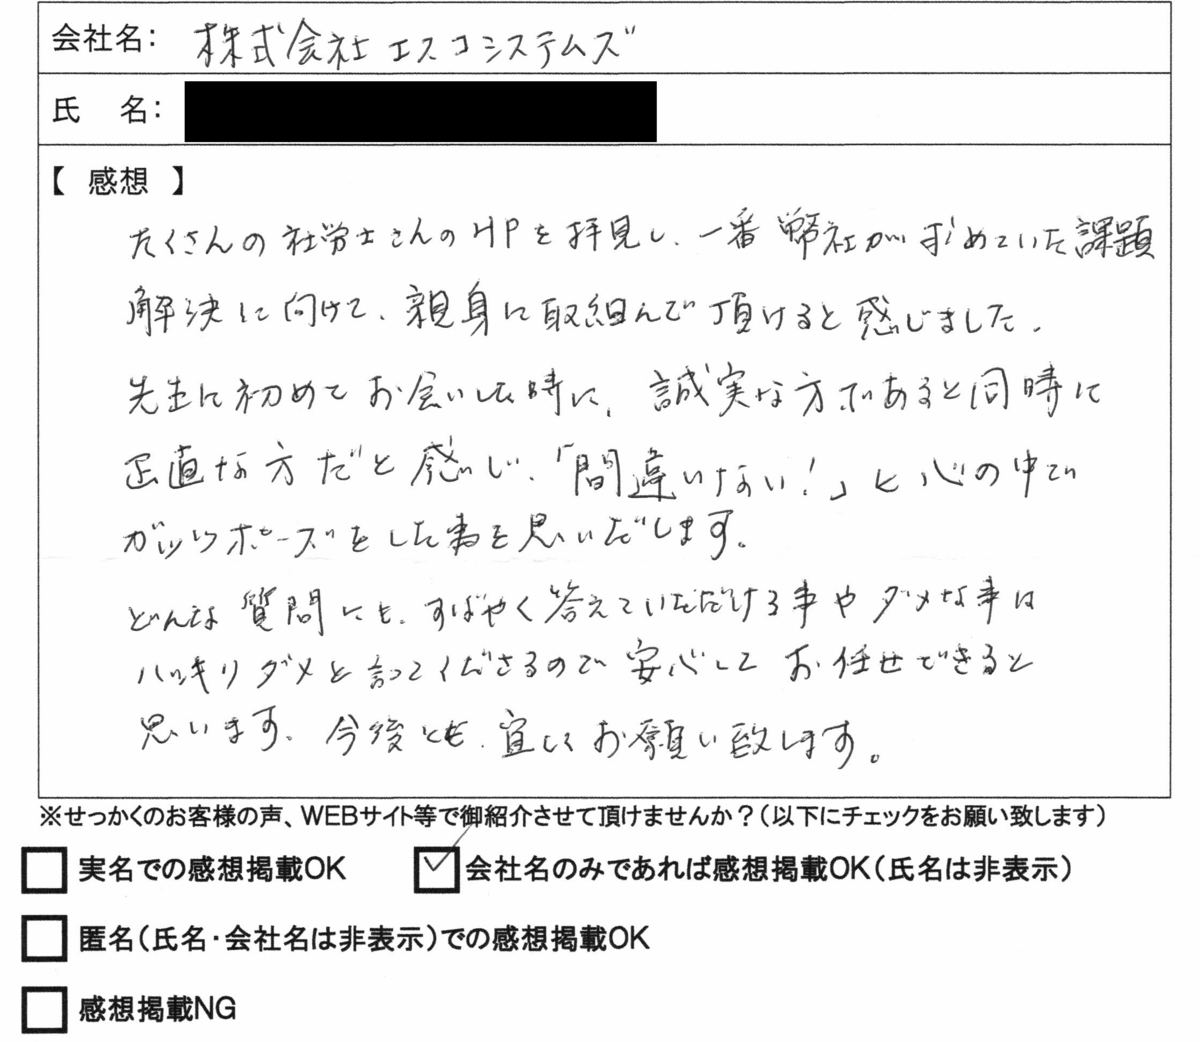 会社名: 株式会社エスコシステムズ
氏　名:
【 感想 】
たくさんの社労士さんのHPを拝見し、一番弊社が求めていた課題
解決に向けて、親身に取組んで頂けると感じました。
先生に初めてお会いした時に、誠実な方であると同時に
正直な方だと感じ、「間違いない!」と心の中で
ガッツポーズをした事を思いだします。
どんな質問にも、すばやく答えていただける事やダメな事は
ハッキリダメと言ってくださるので安心してお任せできると
思います。今後とも、宜しくお願い致します。
※せっかくのお客様の声、WEBサイト等で御紹介させて頂けませんか?(以下にチェックをお願い致します)
実名での感想掲載OK 会社名のみであれば感想掲載OK(氏名は非表示)
匿名(氏名・会社名は非表示)での感想掲載OK
感想掲載NG